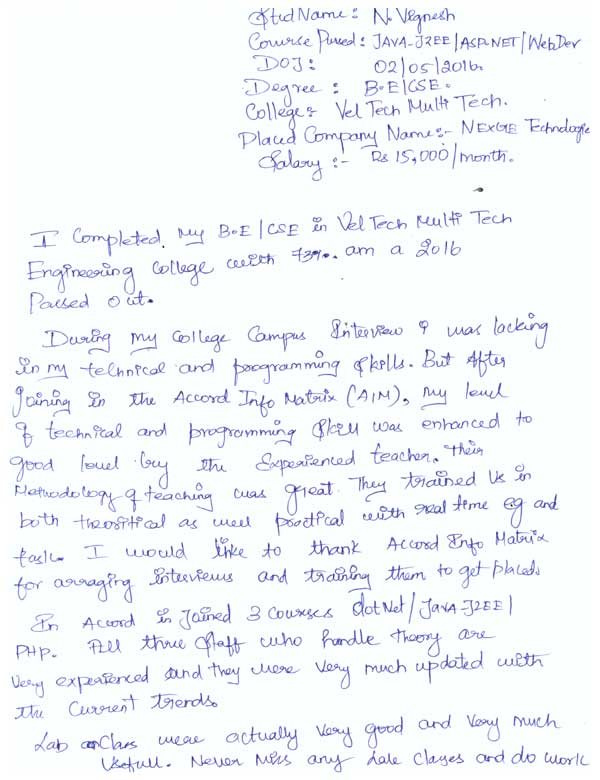 Stud Name: N. Vignesh
Course Pursed: JAVA-J2EE/ASP.NET/WebDev
DOJ: 02/05/2016.
Degree: B.E/CSE.
College: Vel Tech Multi Tech.
Placed Company Name:- NEXGE Technologie
Salary:- Rs 15,000/month.
I Completed. My B.E/CSE in Vel Tech Multi Tech
Engineering College with 73%. am a 2016
Passed out.
During my College Campus Interview I was lacking
in my technical and programming Skills. But After
Joining in the Accord Info Matrix (AIM), My level
of technical and programming Skill was enhanced to
good level by the Experienced teacher. Their
Methodology of teaching was great. They trained Us in
both theoritical as well practical with real time eg and
task. I would like to thank Accord Info Matrix
for arraging interviews and training them to get placed.
In Accord in Joined 3 Courses dotNet/JAVA-J2EE/
PHP. All three Staff who handle theory are
Very experienced and they were Very much updated with
the Current trends.
Lab Class were actually Very good and Very much
Usefull. Never Miss any Class and do work